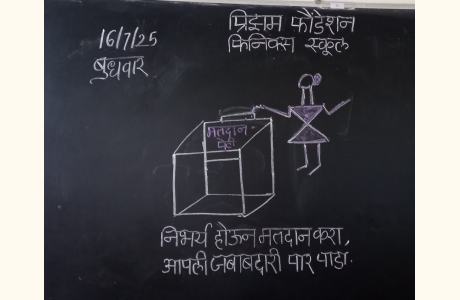 प्रिझम फौंडेशन
फिनिक्स स्कूल
16/7/25
बुधवार
मतदान-
पेटी
निर्भय होऊन मतदान करा,
आपली जबाबदारी पार पाडा.